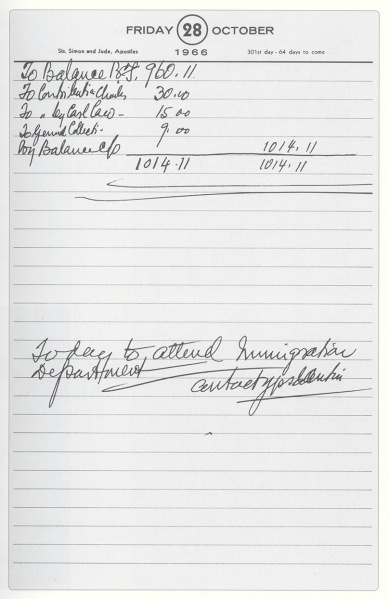 FRIDAY 28 OCTOBER
Sts. Simon and Jude, Apostles 1966 301st day - 64 days to come
To Balance B/F. 960.11
To Contribution Charles 30.00
To " by Carl Caro - 15 00
To General Collecti - 9. 00
By Balance C/D 1014.11
1014.11 1014.11
To day to attend Immigration
Department
contact